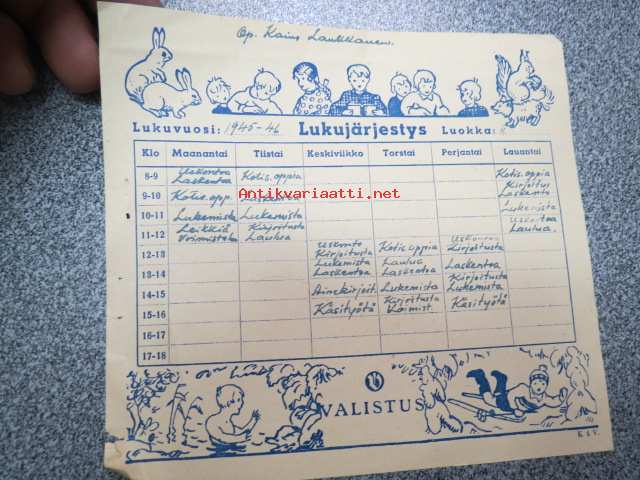 Op. Kaino Laukkanen.
Lukuvuosi: 1945-46 Lukujärjestys Luokka:
Klo Maanantai Tiistai Keskiviikko Torstai Perjantai Lauantai
8-9 Uskontoa Kotis.oppia Kotis.oppia
Laskentoa Kirjoitus
9-10 Kotis.opp. Laskentoa Laskento
Antikvariaatti.net
10-11 Lukemista Lukemista Lukemista
Leikkiä Kirjoitusta Uskontoa
11-12 Voimistelua Laulua Laulua.
Uskonto Kotis.oppia Uskonto
12-13 Kirjoitusta Kirjoitusta
Lukemista Laulua
13-14 Laskentoa Laskentoa Laskentoa
Kirjoitusta
14-15 Ainekirjoit. Lukemista Lukemista
Kirjoitusta
15-16 Käsityötä Voimist. Käsityötä
16-17
17-18
VALISTUS